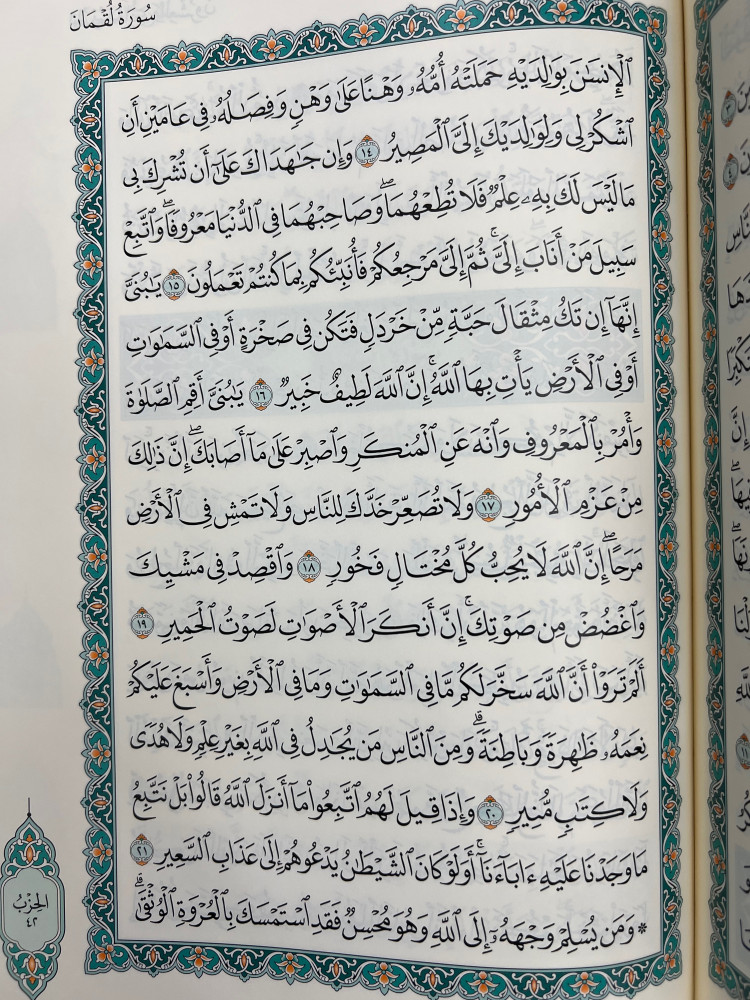 سُورَةُ لُقْمَانَ
ٱلْإِنسَٰنَ بِوَٰلِدَيْهِ حَمَلَتْهُ أُمُّهُۥ وَهْنًا عَلَىٰ وَهْنٍ وَفِصَٰلُهُۥ فِى عَامَيْنِ أَنِ
ٱشْكُرْ لِى وَلِوَٰلِدَيْكَ إِلَىَّ ٱلْمَصِيرُ ١٤ وَإِن جَٰهَدَاكَ عَلَىٰٓ أَن تُشْرِكَ بِى
مَا لَيْسَ لَكَ بِهِۦ عِلْمٌ فَلَا تُطِعْهُمَا ۖ وَصَاحِبْهُمَا فِى ٱلدُّنْيَا مَعْرُوفًا ۖ وَٱتَّبِعْ
سَبِيلَ مَنْ أَنَابَ إِلَىَّ ۚ ثُمَّ إِلَىَّ مَرْجِعُكُمْ فَأُنَبِّئُكُم بِمَا كُنتُمْ تَعْمَلُونَ ١٥ يَٰبُنَىَّ
إِنَّهَآ إِن تَكُ مِثْقَالَ حَبَّةٍ مِّنْ خَرْدَلٍ فَتَكُن فِى صَخْرَةٍ أَوْ فِى ٱلسَّمَٰوَٰتِ
أَوْ فِى ٱلْأَرْضِ يَأْتِ بِهَا ٱللَّهُ ۚ إِنَّ ٱللَّهَ لَطِيفٌ خَبِيرٌ ١٦ يَٰبُنَىَّ أَقِمِ ٱلصَّلَوٰةَ
وَأْمُرْ بِٱلْمَعْرُوفِ وَٱنْهَ عَنِ ٱلْمُنكَرِ وَٱصْبِرْ عَلَىٰ مَآ أَصَابَكَ ۖ إِنَّ ذَٰلِكَ
مِنْ عَزْمِ ٱلْأُمُورِ ١٧ وَلَا تُصَعِّرْ خَدَّكَ لِلنَّاسِ وَلَا تَمْشِ فِى ٱلْأَرْضِ
مَرَحًا ۖ إِنَّ ٱللَّهَ لَا يُحِبُّ كُلَّ مُخْتَالٍ فَخُورٍ ١٨ وَٱقْصِدْ فِى مَشْيِكَ
وَٱغْضُضْ مِن صَوْتِكَ ۚ إِنَّ أَنكَرَ ٱلْأَصْوَٰتِ لَصَوْتُ ٱلْحَمِيرِ ١٩
أَلَمْ تَرَوْا۟ أَنَّ ٱللَّهَ سَخَّرَ لَكُم مَّا فِى ٱلسَّمَٰوَٰتِ وَمَا فِى ٱلْأَرْضِ وَأَسْبَغَ عَلَيْكُمْ
نِعَمَهُۥ ظَٰهِرَةً وَبَاطِنَةً ۗ وَمِنَ ٱلنَّاسِ مَن يُجَٰدِلُ فِى ٱللَّهِ بِغَيْرِ عِلْمٍ وَلَا هُدًى
وَلَا كِتَٰبٍ مُّنِيرٍ ٢٠ وَإِذَا قِيلَ لَهُمُ ٱتَّبِعُوا۟ مَآ أَنزَلَ ٱللَّهُ قَالُوا۟ بَلْ نَتَّبِعُ
مَا وَجَدْنَا عَلَيْهِ ءَابَآءَنَآ ۚ أَوَلَوْ كَانَ ٱلشَّيْطَٰنُ يَدْعُوهُمْ إِلَىٰ عَذَابِ ٱلسَّعِيرِ ٢١
* وَمَن يُسْلِمْ وَجْهَهُۥٓ إِلَى ٱللَّهِ وَهُوَ مُحْسِنٌ فَقَدِ ٱسْتَمْسَكَ بِٱلْعُرْوَةِ ٱلْوُثْقَىٰ ۗ
الحِزْبُ
٤٢